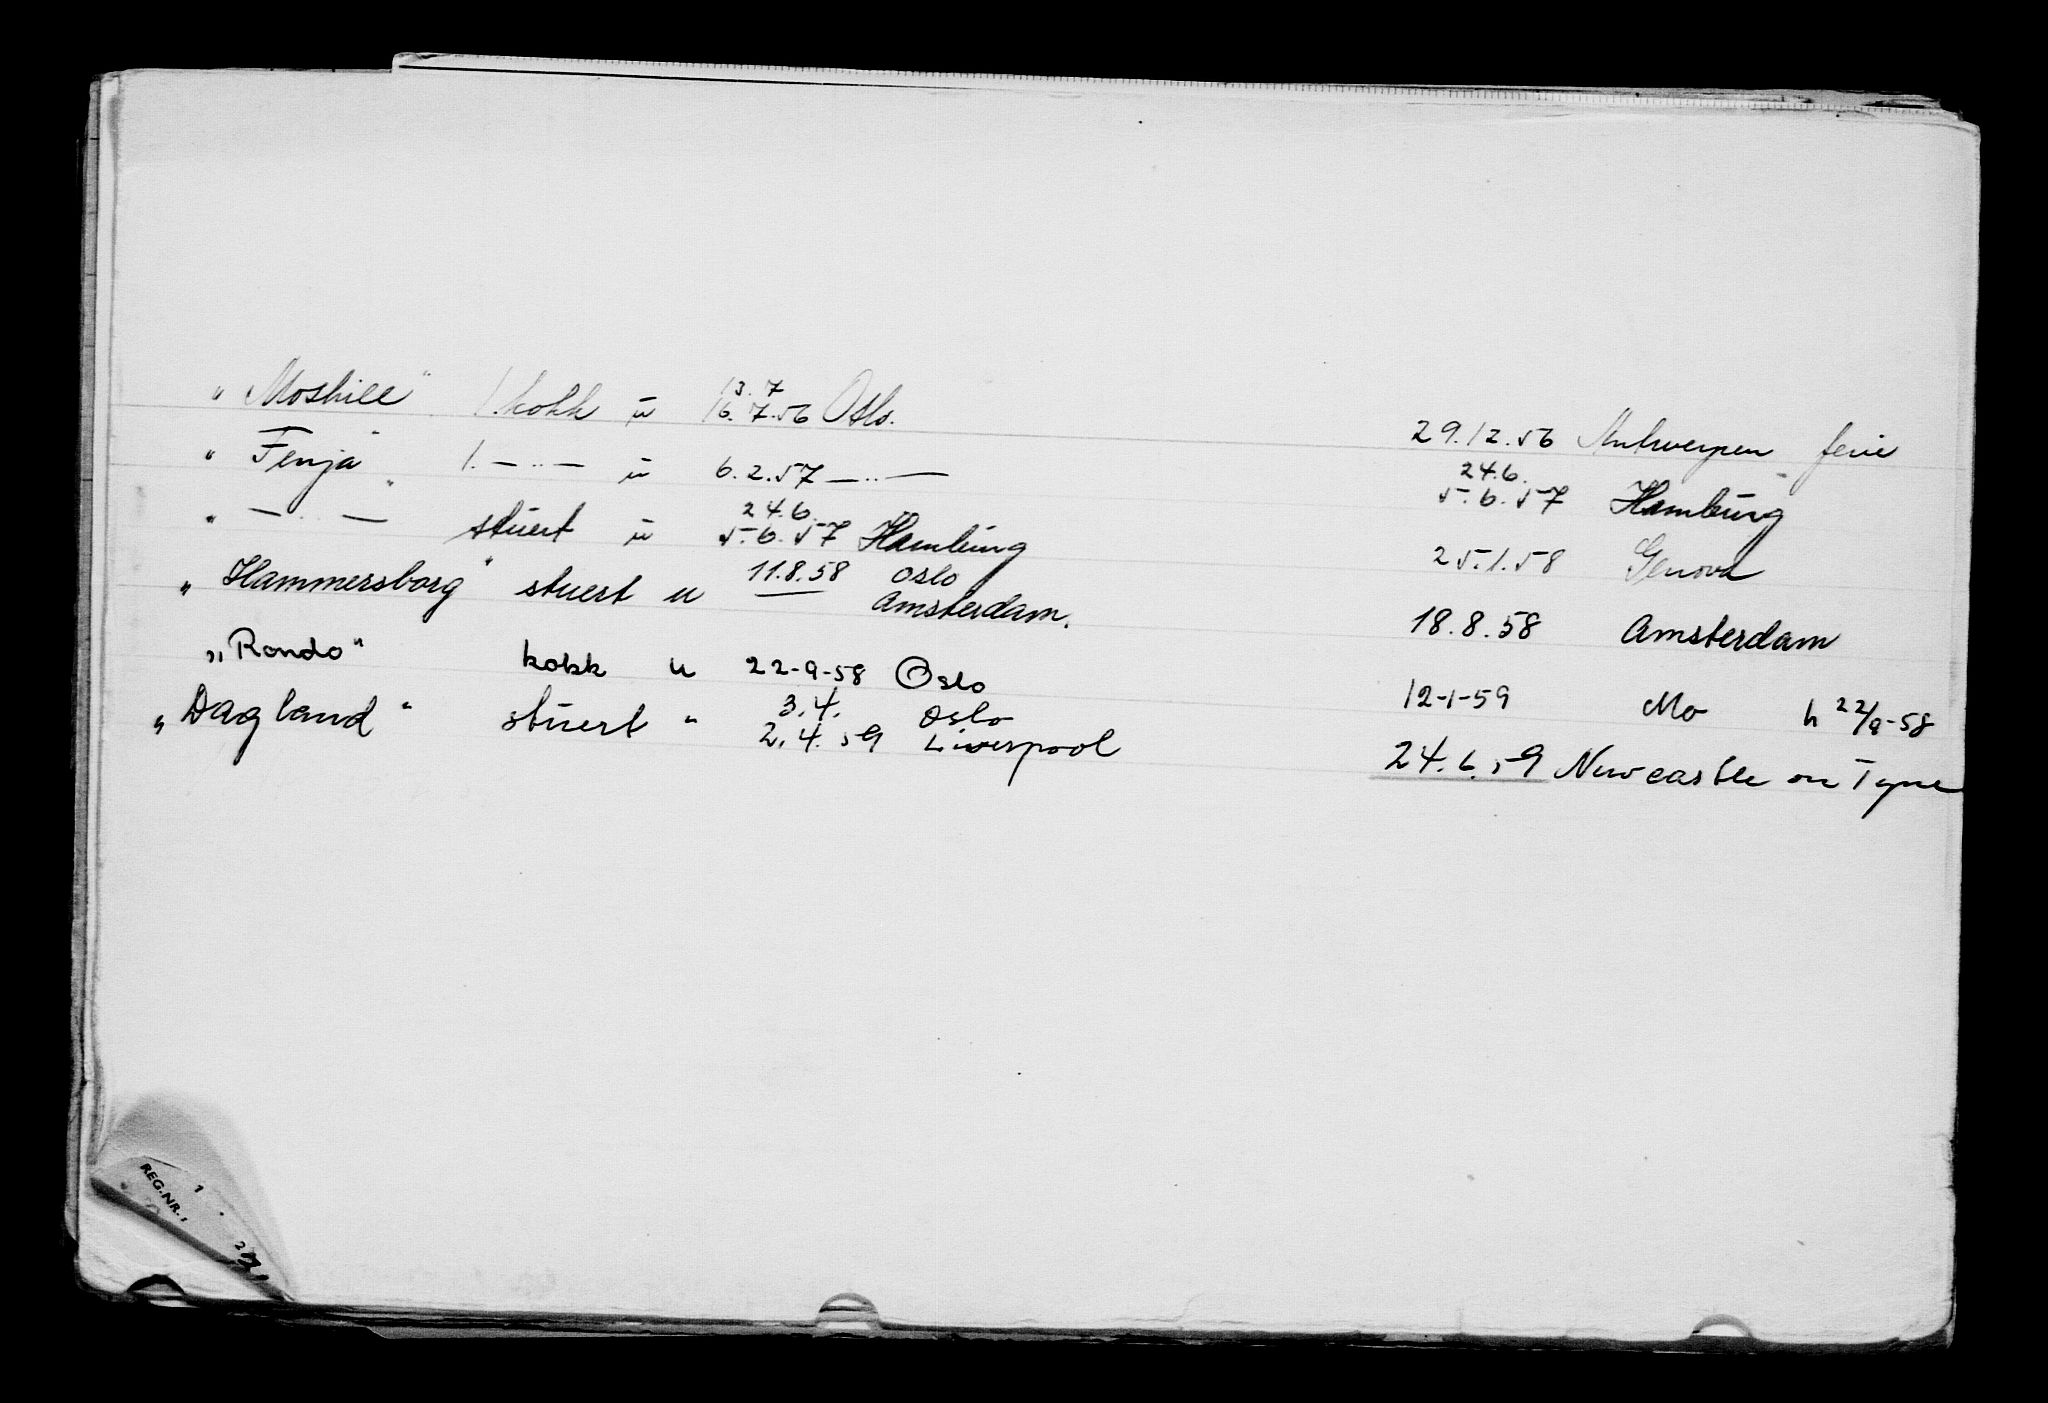 „Moshill" 1. kokk u 13.7 16.7.56 Oslo. 29.12.56 Antwerpen ferie
„Fenja" 1. —„— u 6.2.57 —„— 24.6. 5.6.57 Hamburg
„—„—" stuert u 24.6. 5.6.57 Hamburg 25.1.58 Genova
„Hammersborg" stuert u 11.8.58 Oslo Amsterdam. 18.8.58 Amsterdam
„Rondo" kokk u 22-9-58 Oslo 12-1-59 Mo h 22/9-58
„Dagland" stuert " 3.4. 2.4.59 Oslo Liverpool 24.6.59 Newcastle on Tyne
REG.NR.
1